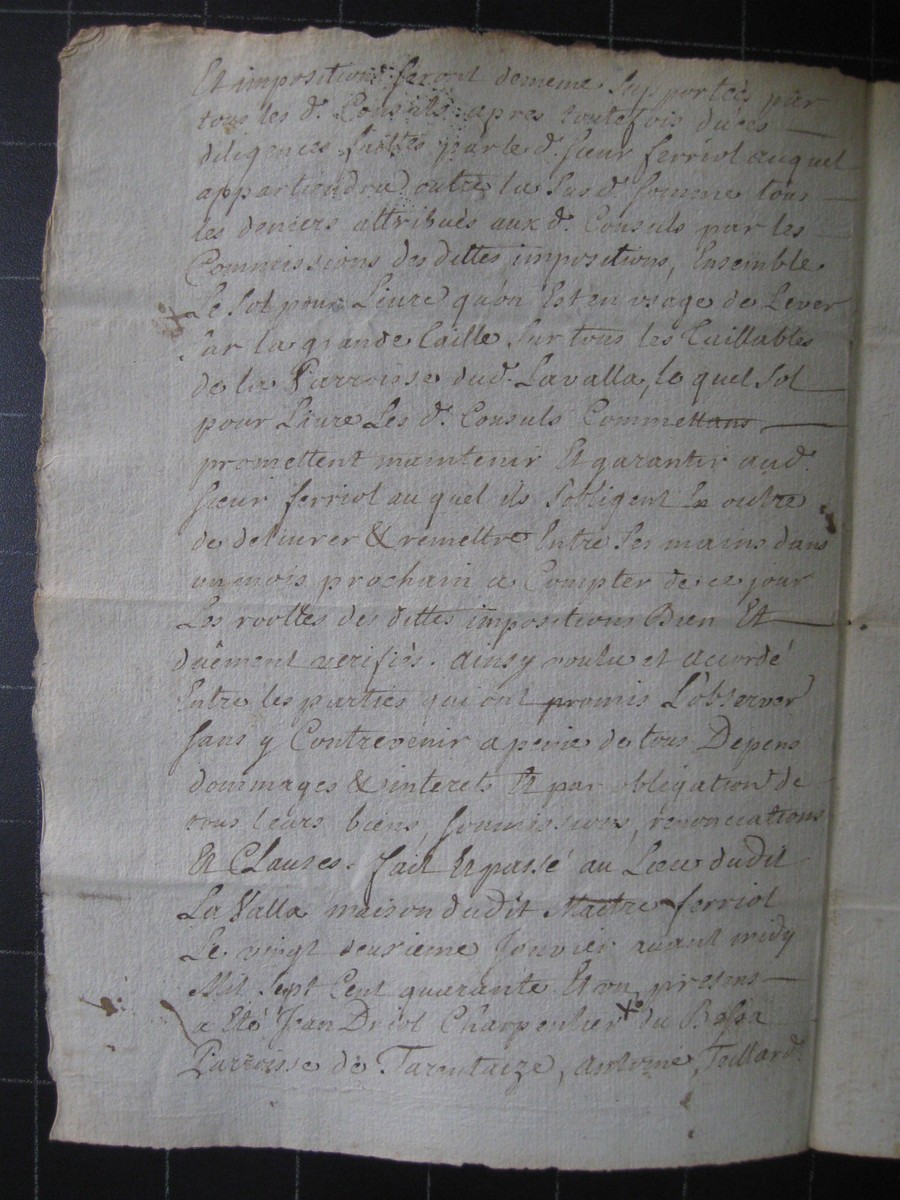 Et imposition seront de meme supportées par
tous les d. Consuls apres toutefois dues
diligences faittes par le d. sieur ferriol auquel
appartiendra outre la susd. somme tous
les deniers attribués aux d. Consuls par les
Commissions des dittes impositions, Ensemble
Le sol pour Livre qu'on Est en usage de Lever
sur la grande Taille sur tous les Taillables
de la Parroisse dud. Lavalla, lequel sol
pour Livre Les d. Consuls Commettans
promettent maintenir Et garantir aud.
sieur ferriol auquel ils s'obligent outre
de delivrer & remettre Entre ses mains dans
un mois prochain a Compter de ce jour
Les roolles des dittes impositions Bien Et
duëment verifiés. ainsy voulu et accordé
Entre les parties qui ont promis L'observer
sans y Contrevenir a peine de tous Depens
dommages & interets Et par obligation de
tous leurs biens, soumissions, renonciations
Et Clauses. fait Et passé au Lieu dudit
La Valla maison dudit Maitre ferriol
Le vingt deuxieme Janvier avant midy
Mil sept Cent quarante Et un presens
a Eté Jean Driol Charpentier du Bessa
Parroisse de Tarentaize, antoine Tellard